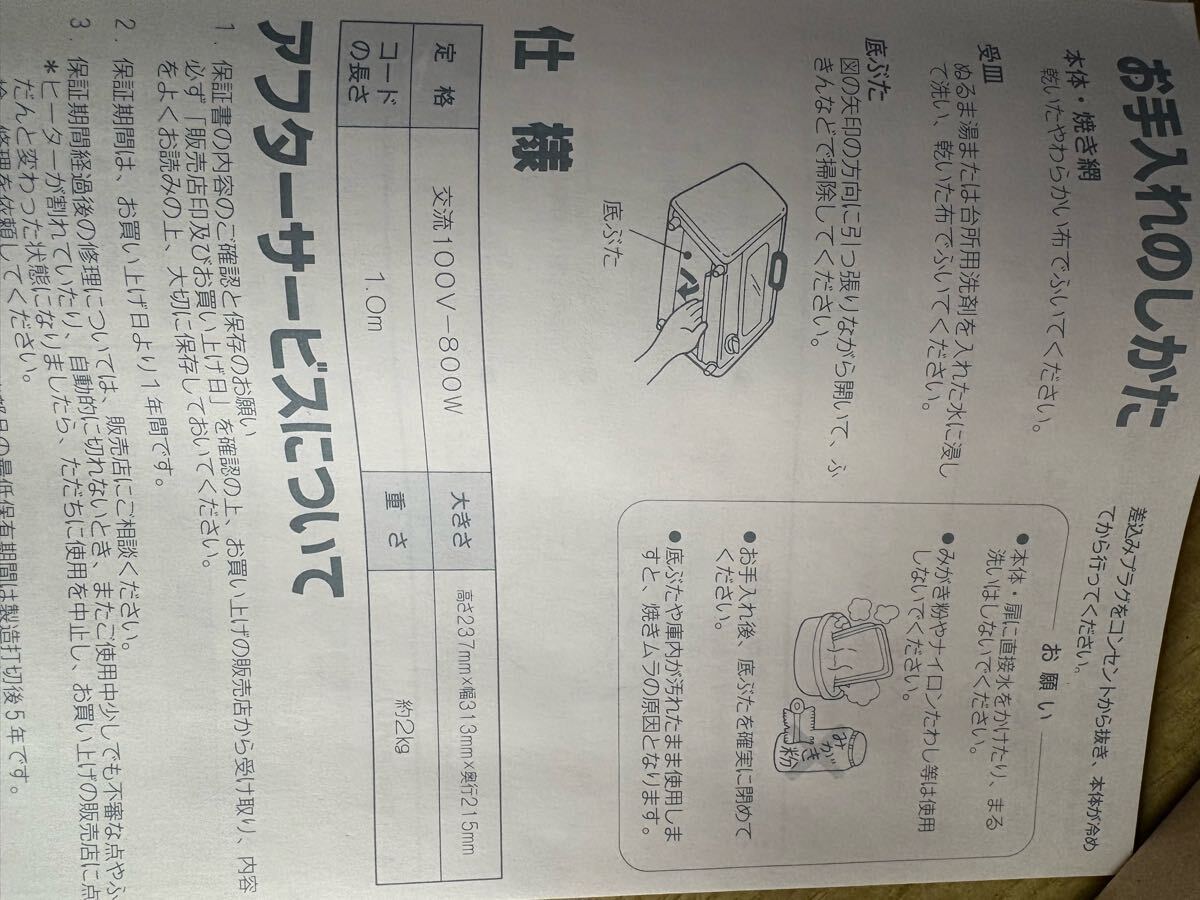 お手入れのしかた
差込みプラグをコンセントから抜き、本体が冷め
てから行ってください。
本体・焼き網
乾いたやわらかい布でふいてください。
受皿
ぬるま湯または台所用洗剤を入れた水に浸し
て洗い、乾いた布でふいてください。
底ぶた
図の矢印の方向に引っ張りながら開いて、ふ
きんなどで掃除してください。
底ぶた
お願い
●本体・扉に直接水をかけたり、まる
洗いはしないでください。
●みがき粉やナイロンたわし等は使用
しないでください。
みがき粉
●お手入れ後、底ぶたを確実に閉めて
ください。
●底ぶたや庫内が汚れたまま使用しま
すと、焼きムラの原因となります。
仕様
定格 交流100V−800W 大きさ 高さ237mm×幅313mm×奥行215mm
コードの長さ 1.0m 重さ 約2kg
アフターサービスについて
1. 保証書の内容のご確認と保存のお願い
必ず「販売店印及びお買い上げ日」を確認の上、お買い上げの販売店から受け取り、内容
をよくお読みの上、大切に保存しておいてください。
2. 保証期間は、お買い上げ日より1年間です。
3. 保証期間経過後の修理については、販売店にご相談ください。
＊ヒーターが割れていたり、自動的に切れないとき、またご使用中少しでも不審な点やふ
だんと変わった状態になりましたら、ただちに使用を中止し、お買い上げの販売店に点
検、修理を依頼してください。
部品の最低保有期間は製造打切後5年です。